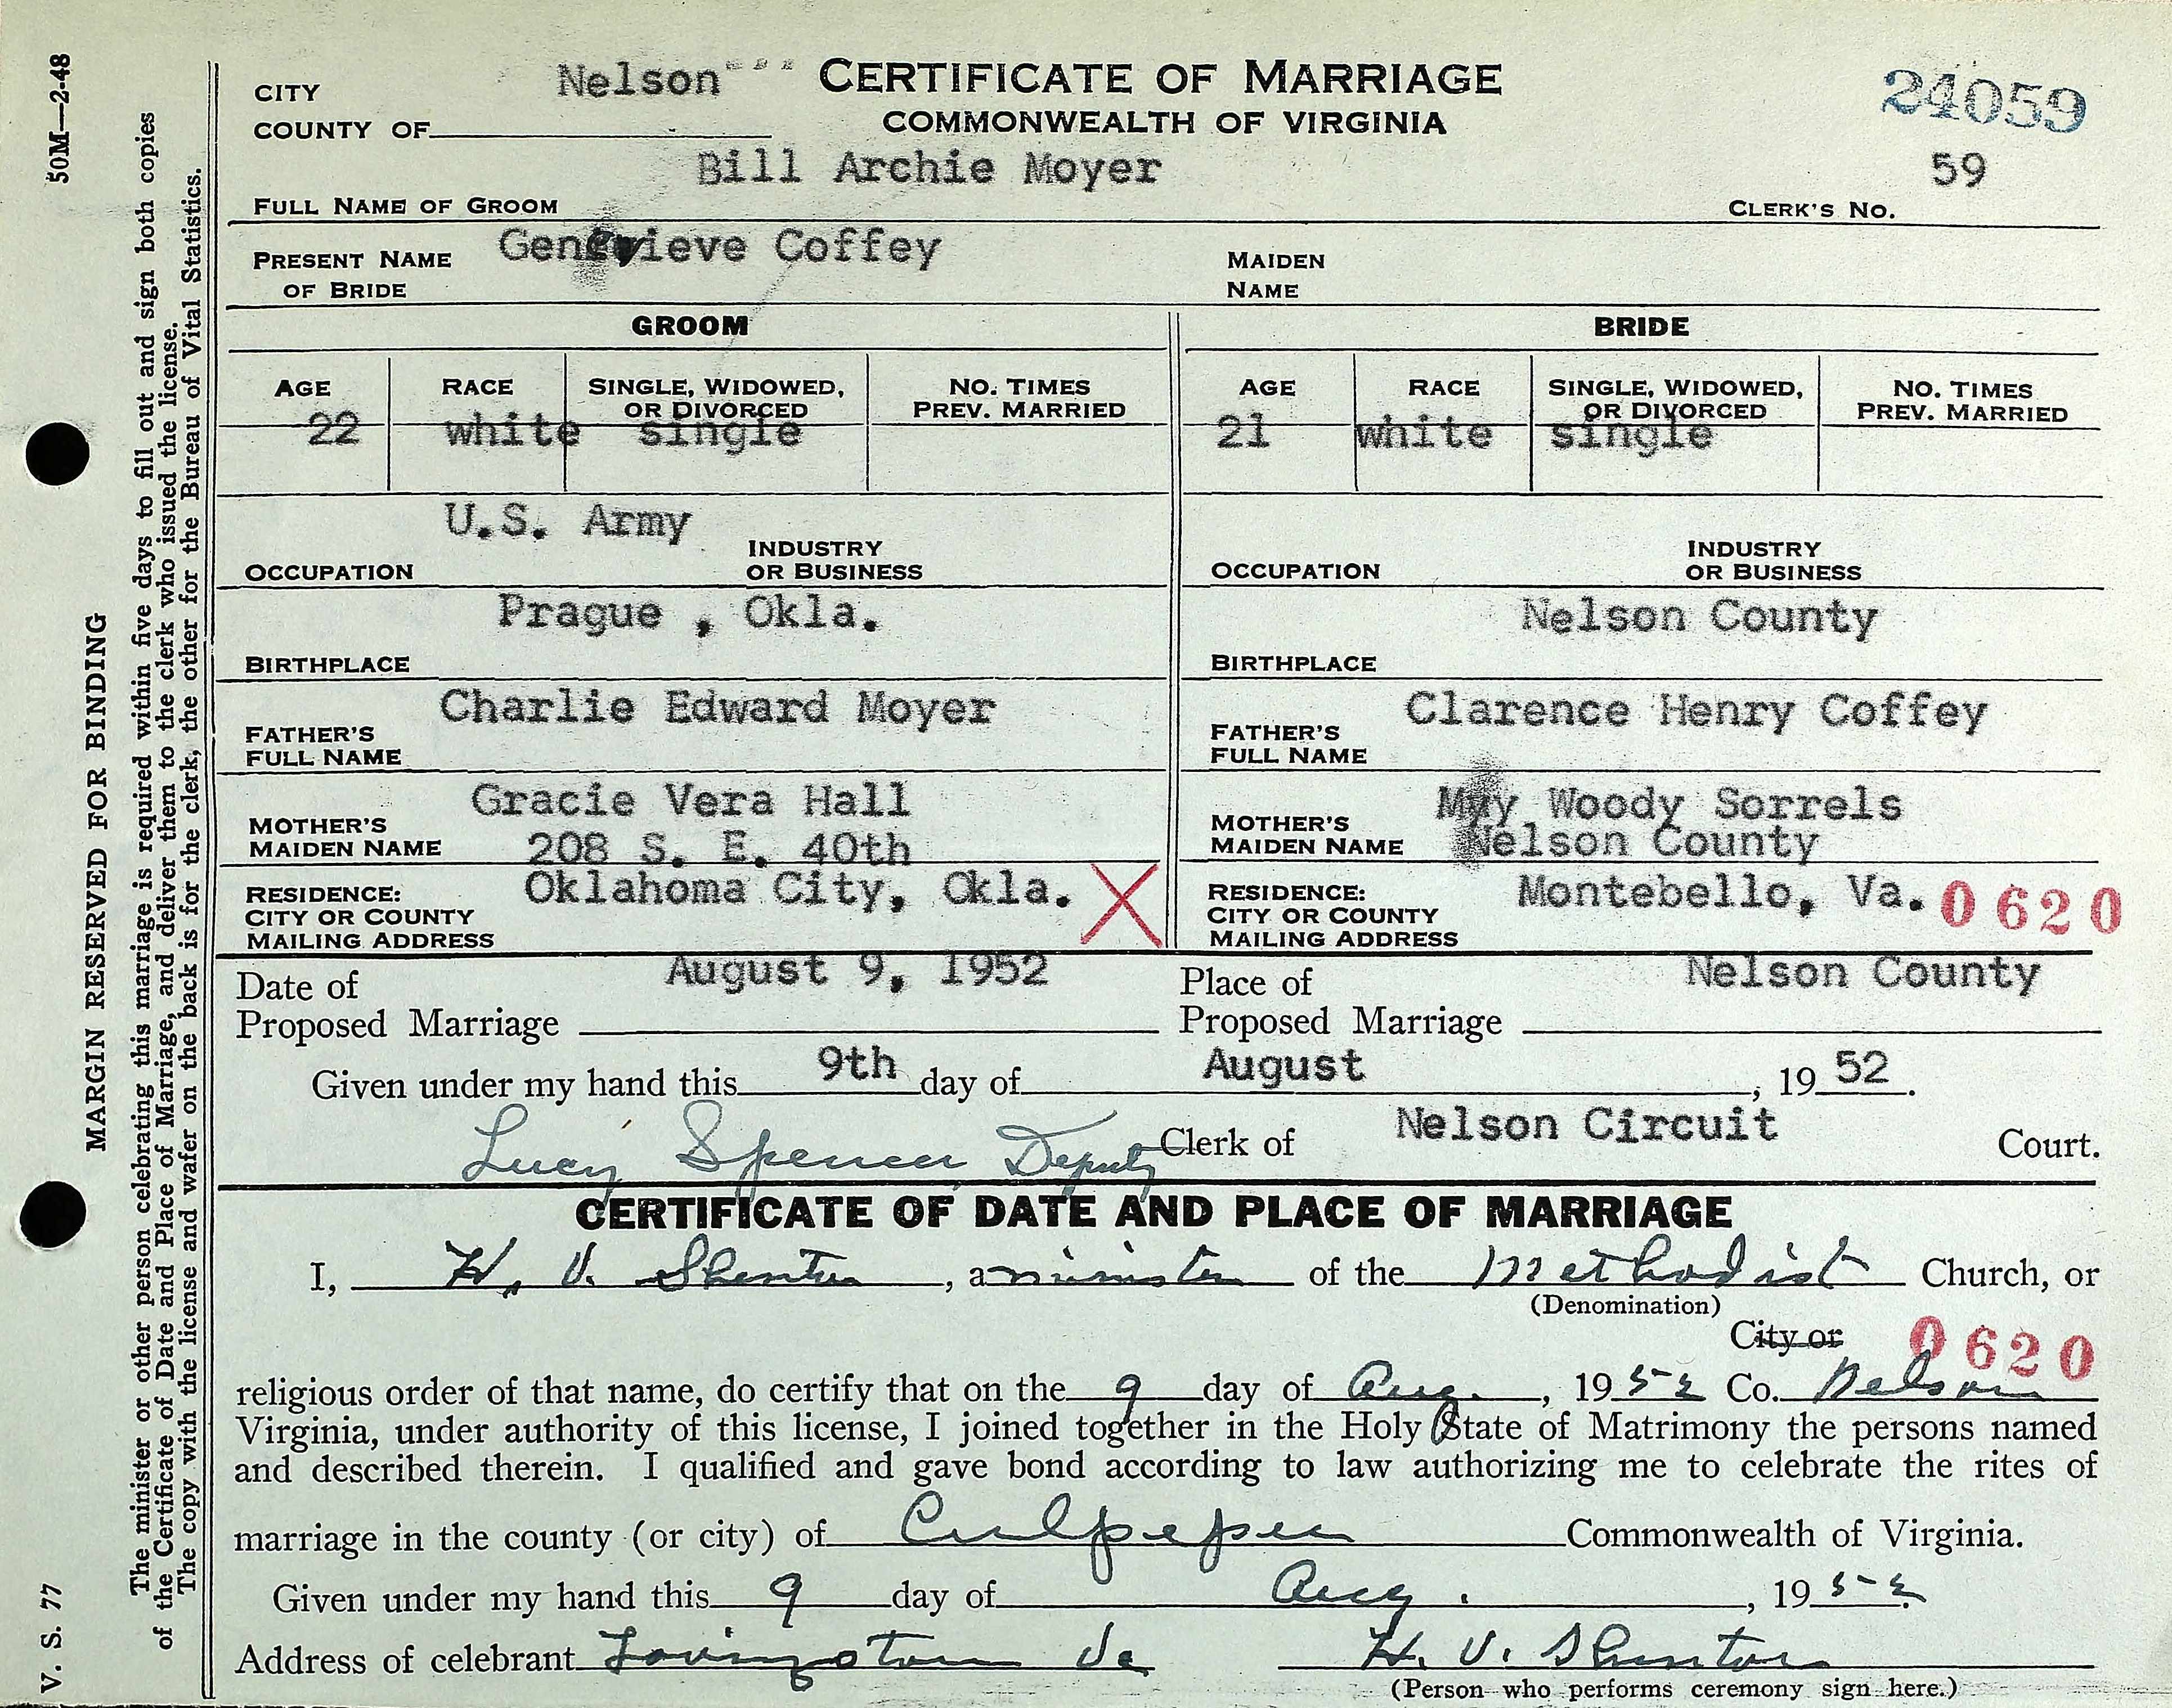 50M—2-48
MARGIN RESERVED FOR BINDING
The minister or other person celebrating this marriage is required within five days to fill out and sign both copies
of the Certificate of Date and Place of Marriage, and deliver them to the clerk who issued the license.
The copy with the license and wafer on the back is for the clerk, the other for the Bureau of Vital Statistics.
V. S. 77
CERTIFICATE OF MARRIAGE
COMMONWEALTH OF VIRGINIA
24059
CITY
COUNTY OF Nelson
FULL NAME OF GROOM Bill Archie Moyer CLERK'S NO. 59
PRESENT NAME OF BRIDE Genevieve Coffey MAIDEN NAME
GROOM BRIDE
AGE RACE SINGLE, WIDOWED, OR DIVORCED NO. TIMES PREV. MARRIED AGE RACE SINGLE, WIDOWED, OR DIVORCED NO. TIMES PREV. MARRIED
22 white single 21 white single
OCCUPATION U.S. Army INDUSTRY OR BUSINESS OCCUPATION INDUSTRY OR BUSINESS
BIRTHPLACE Prague , Okla. BIRTHPLACE Nelson County
FATHER'S FULL NAME Charlie Edward Moyer FATHER'S FULL NAME Clarence Henry Coffey
MOTHER'S MAIDEN NAME Gracie Vera Hall MOTHER'S MAIDEN NAME May Woody Sorrels
208 S. E. 40th Nelson County
RESIDENCE: CITY OR COUNTY MAILING ADDRESS Oklahoma City, Okla. X RESIDENCE: CITY OR COUNTY MAILING ADDRESS Montebello, Va. 0620
Date of Proposed Marriage August 9, 1952 Place of Proposed Marriage Nelson County
Given under my hand this 9th day of August, 19 52.
Lucy Spencer Deputy Clerk of Nelson Circuit Court.
CERTIFICATE OF DATE AND PLACE OF MARRIAGE
I, H. V. Shenton, a minister of the Methodist Church, or
(Denomination)
City or 0620
religious order of that name, do certify that on the 9 day of Aug., 1952 Co. Nelson
Virginia, under authority of this license, I joined together in the Holy State of Matrimony the persons named
and described therein. I qualified and gave bond according to law authorizing me to celebrate the rites of
marriage in the county (or city) of Culpeper Commonwealth of Virginia.
Given under my hand this 9 day of Aug., 1952.
Address of celebrant Lovingston Va H. V. Shenton
(Person who performs ceremony sign here.)